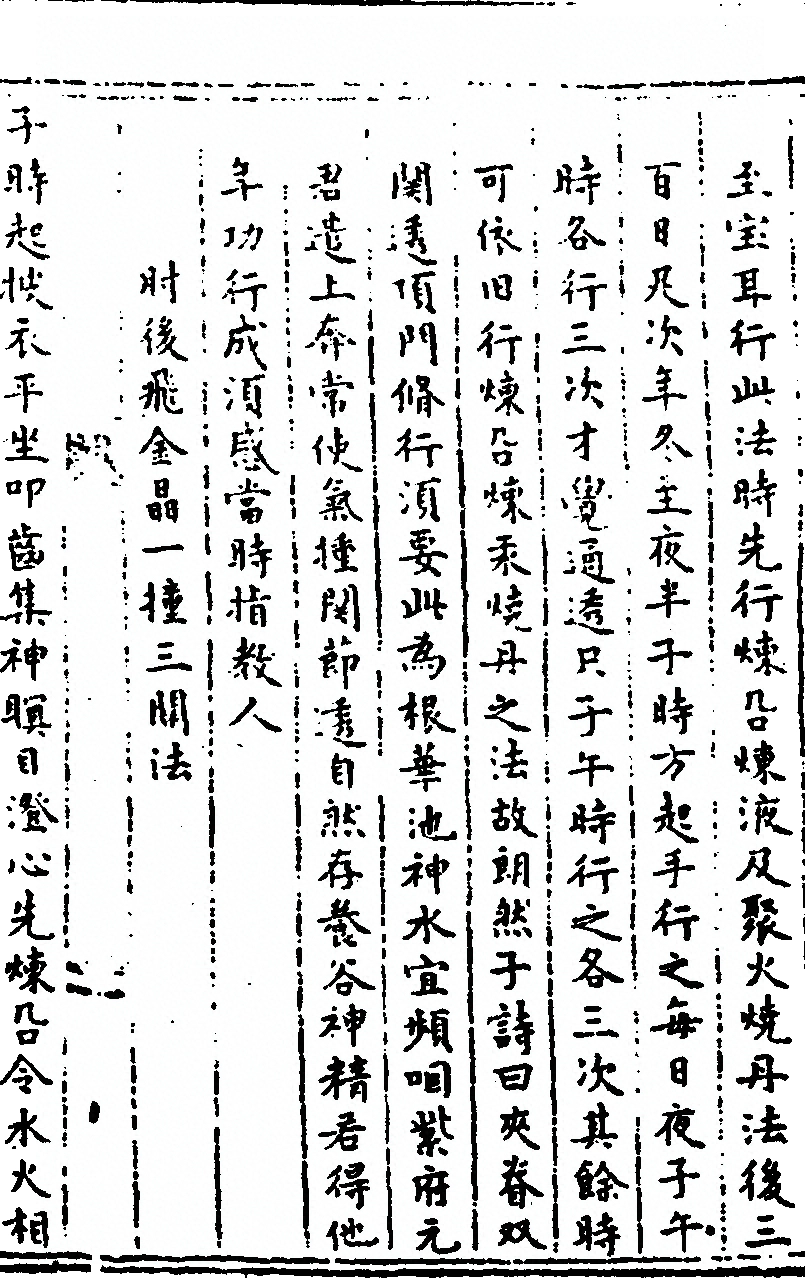 至宝耳行此法時先行煉呂煉液及聚火燒丹法後三
百日凡次年冬至夜半子時方起手行之每日夜子午
時各行三次才覺通透只子午時行之各三次其餘時
可依旧行煉呂煉汞燒丹之法故朗然子詩曰夾脊双
関透頂門脩行須要此為根華池神水宜頻咽紫府元
君遣上奔常使氣撞関節透自然存養谷神精若得他
年功行成須感當時指教人
肘後飛金晶一撞三關法
子時起披衣平坐叩齒集神瞑目澄心先煉呂令水火相